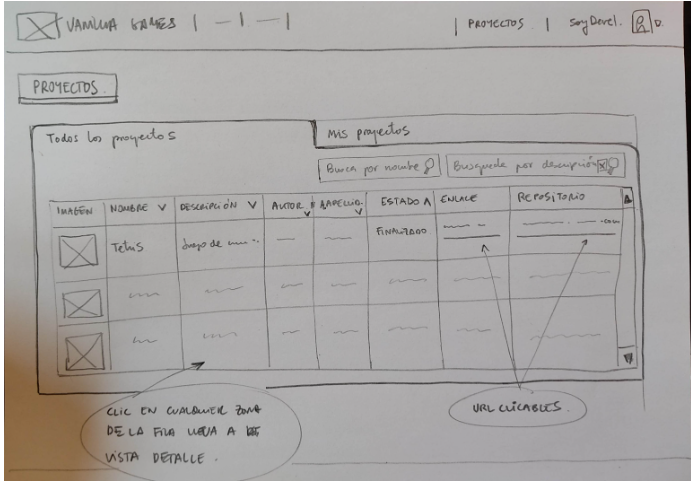 VANILLA GAMES | PROYECTOS | Soy Devel. D.
PROYECTOS.
Todos los proyectos
Mis proyectos
Busca por nombre Busqueda por descripción
IMAGEN NOMBRE DESCRIPCIÓN AUTOR. APELLID. ESTADO ENLACE REPOSITORIO
Tetris Juego de FINALIZADO .com
CLIC EN CUALQUIER ZONA
DE LA FILA LLEVA A
VISTA DETALLE.
URL CLICABLES.